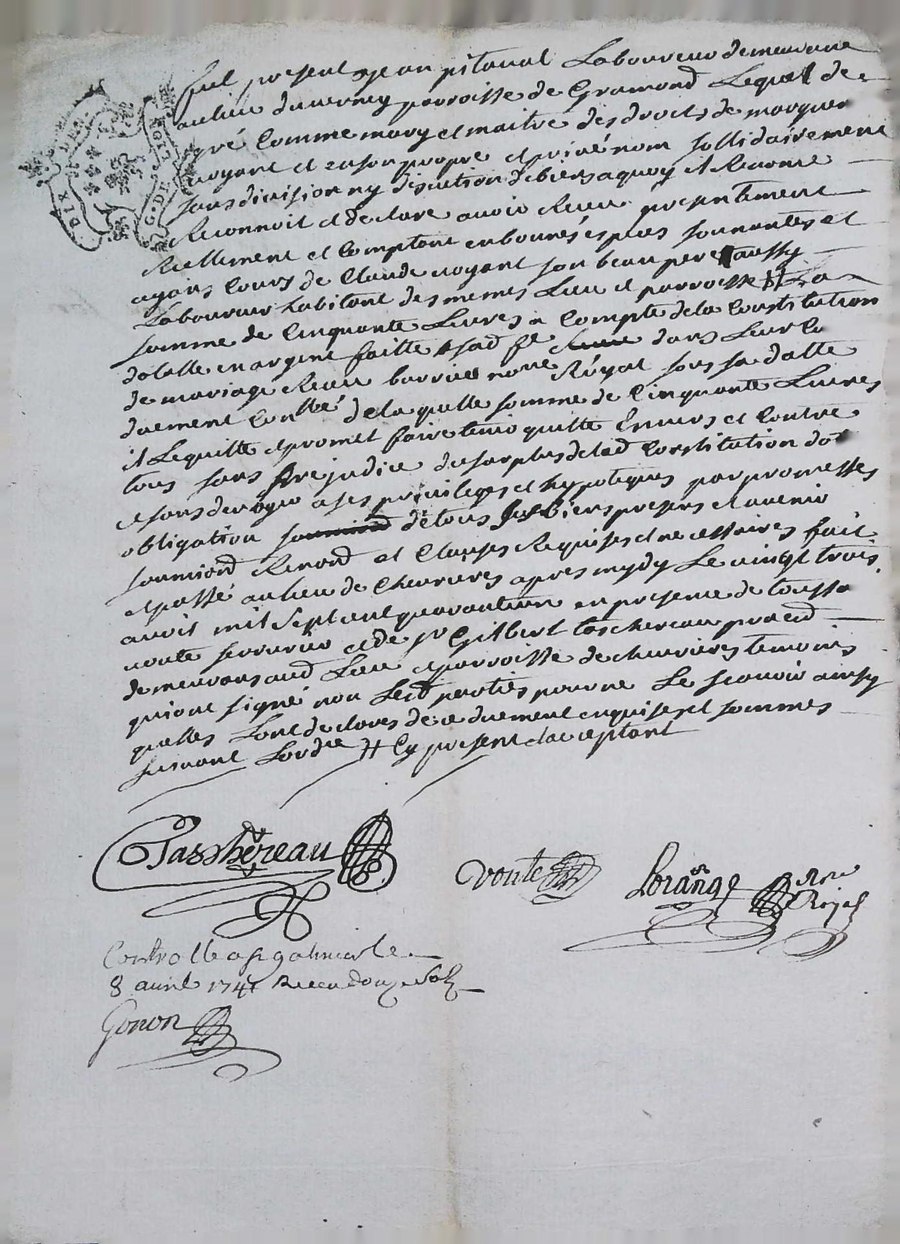 fut present jean pitaval Laboureur demeurant
au lieu duverney parroisse de Gramond Lequel de
gré comme mary et maitre des droits de marguer
voyant et en son propre et privé nom sollidairement
sans division ny discution de biens a quoy il Renonce
Reconnoit et declare avoir Receu presentement
Reellement et comptant en bonnes espèces sonnantes et
ayans cours de Claude voyant son beau pere aussy
Laboureur habitant des memes Lieu et parroisse # La
somme de cinquante Livres a compte de la constitution
dotalle en argent faitte a sad fe dans Leur co
de mariage Receu barrieu nore Royal sous sa datte
duement conllé de laquelle somme de cinquante Livres
il Lequitte et promet faire tenir quitte Envers et contre
tous sans prejudice du surplus de lad constitution dot
et sans deroger a ses privileges et hypoteques par promesses
obligation de tous ses biens presens et avenir
soumiond Renond et clauses Requises et necessaires fait
et passé au lieu de Chevrieres apres mydy Le vingt trois
avril mil sept cent quarante un en presence de toussa
voute serrurier et de sr Gilbert taschereau praticd
demeurans aud Lieu et parroisse de chevrieres temoins
qui ont signé non Lesd parties pour ne Le scavoir ainsy
quelles Lont declarés de ce duement enquises et sommes
suivant Lordre # Cy present et acceptant
Taschereau
Voute
Lorange nore
Royal
Controlle a st galmier le
8 avril 1741 Receu douze sols
Gonon
DIX DEN
G. DE LION